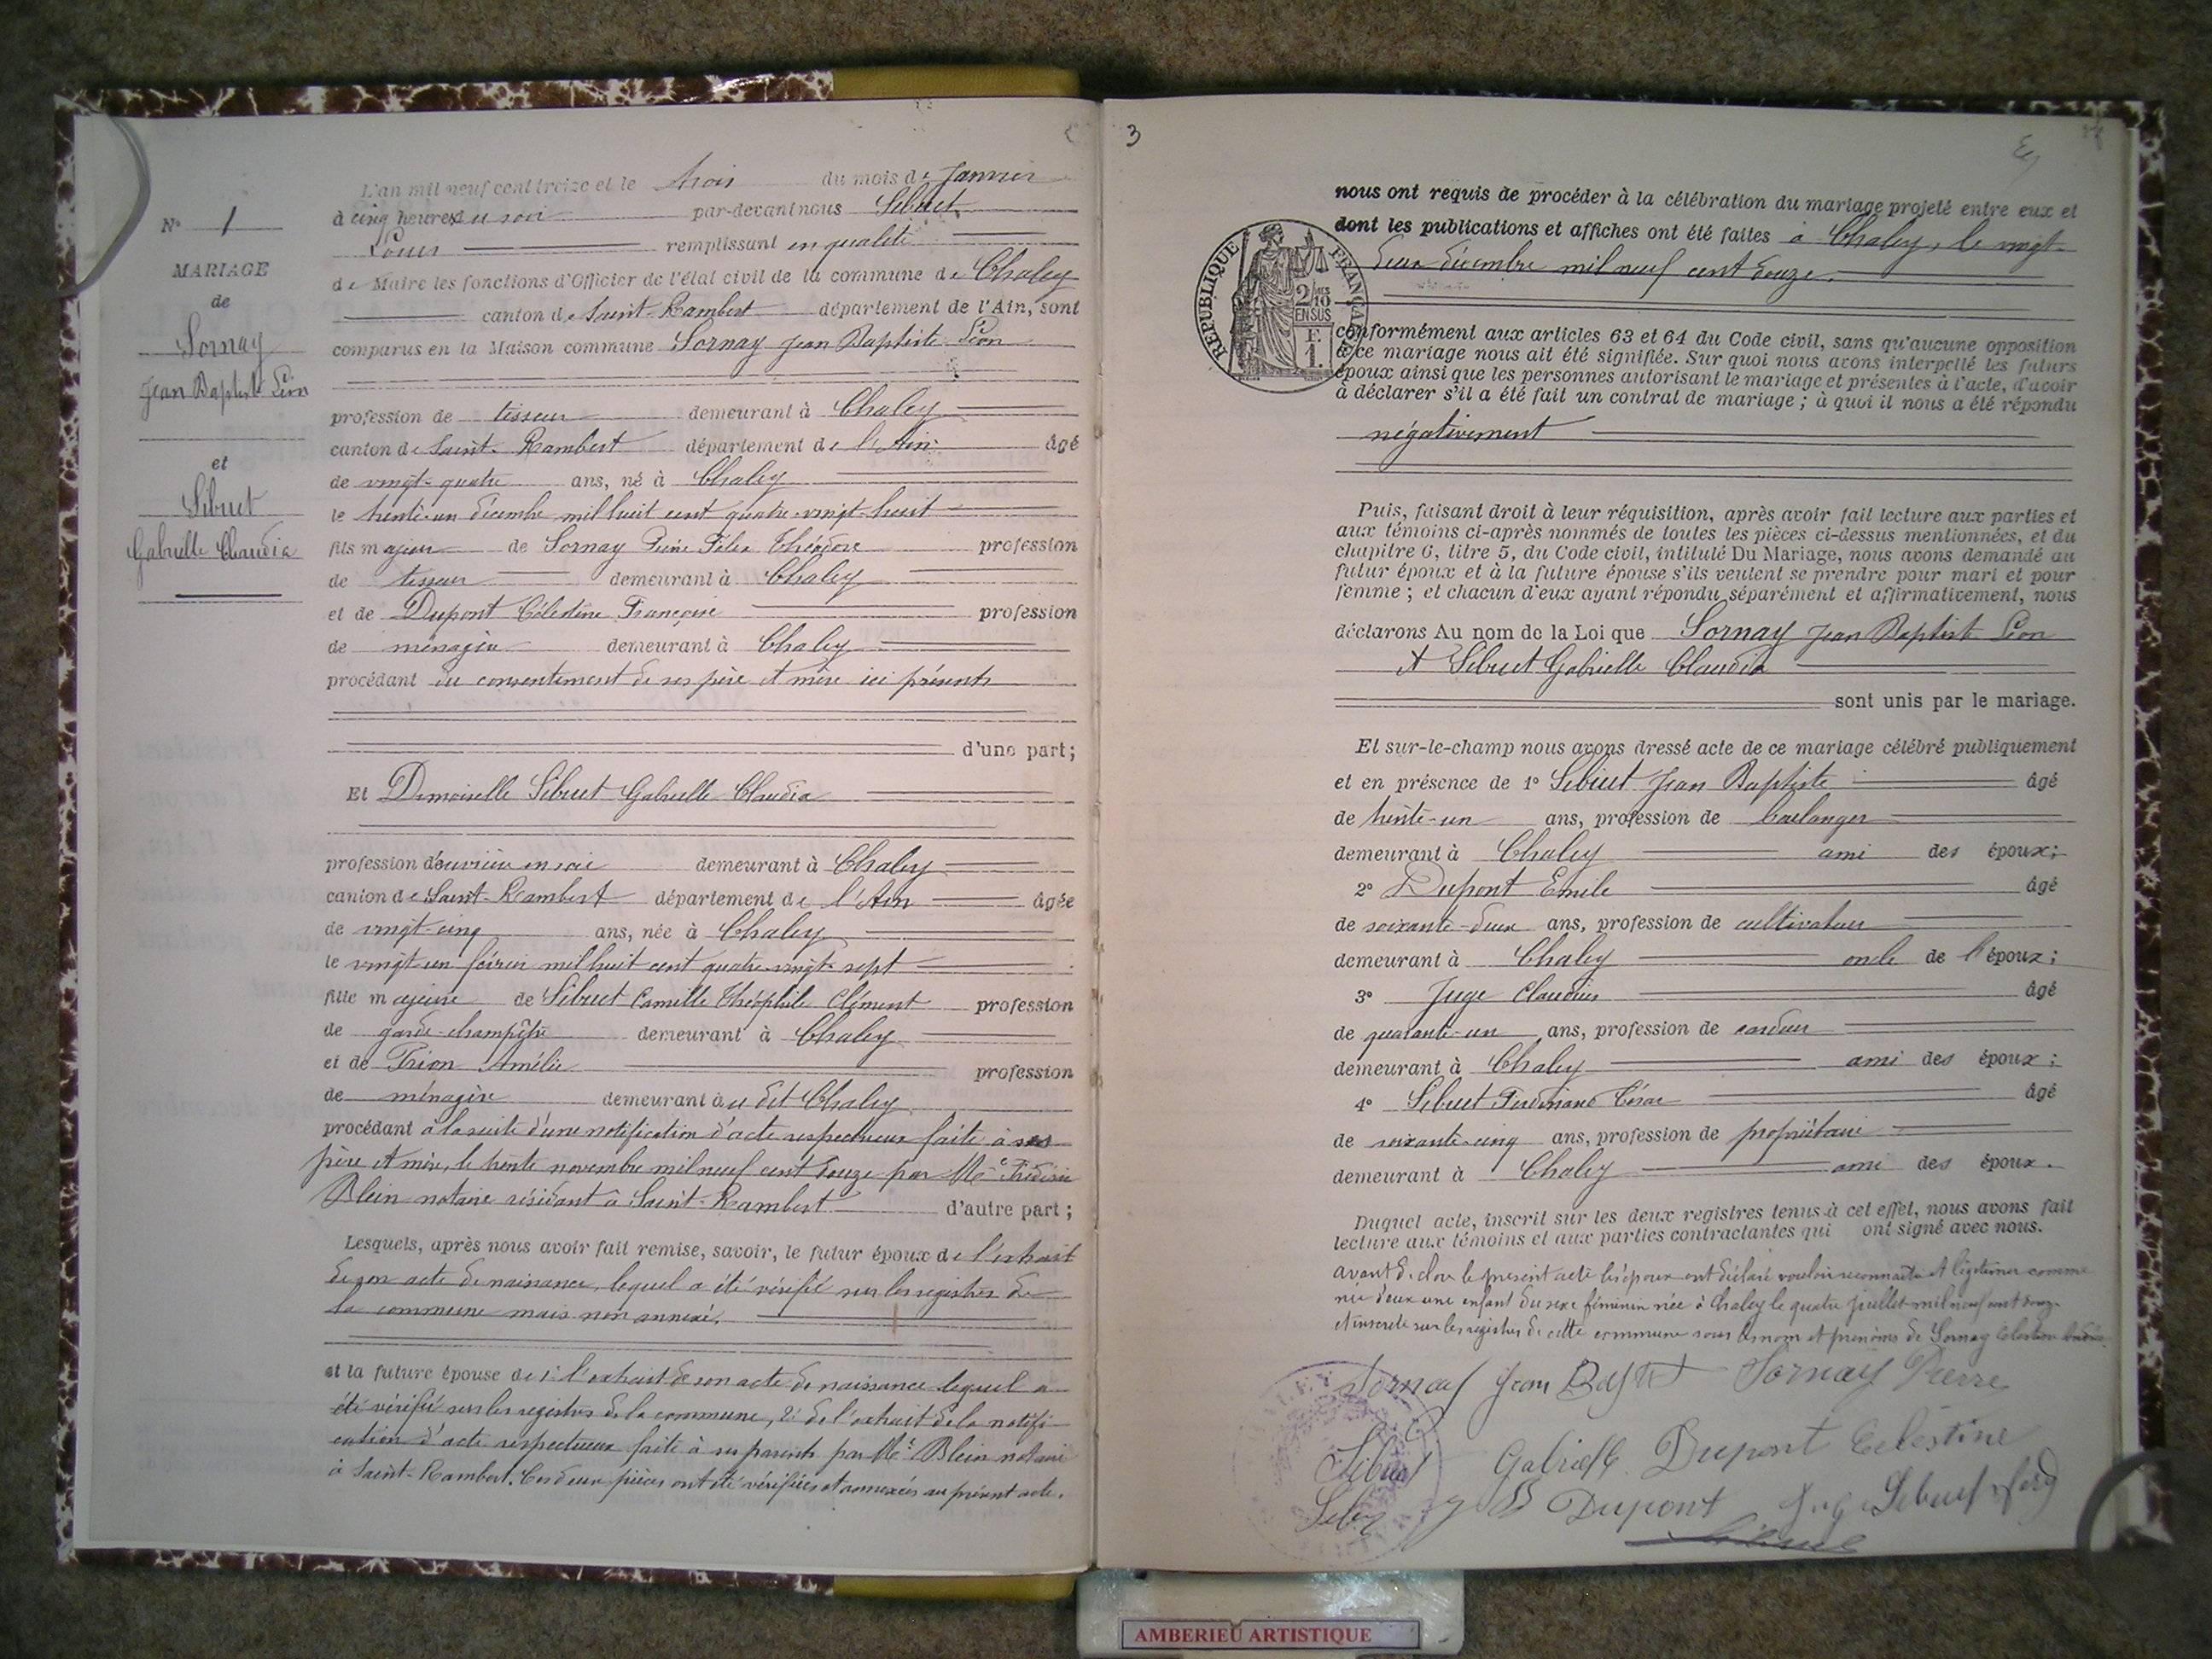 N° 1
MARIAGE
de
Sornay
Jean Baptiste Léon
et
Sibuet
Gabrielle Claudia
L'an mil neuf cent treize et le trois du mois de Janvier
à cinq heures du soir par-devant nous Sibuet
Louis remplissant en qualité
de Maire les fonctions d'Officier de l'état civil de la commune de Chaley
canton de Saint-Rambert département de l'Ain, sont
comparus en la Maison commune Sornay Jean Baptiste Léon
profession de tisseur demeurant à Chaley
canton de Saint-Rambert département de l'Ain âgé
de vingt-quatre ans, né à Chaley
le trente-un décembre mil huit cent quatre-vingt-huit
fils majeur de Sornay Pierre Félix Théodore profession
de tisseur demeurant à Chaley
et de Dupont Célestine Françoise profession
de ménagère demeurant à Chaley
procédant du consentement de ses père et mère ici présents
d'une part;
Et Demoiselle Sibuet Gabrielle Claudia
profession d'ouvrière en soie demeurant à Chaley
canton de Saint-Rambert département de l'Ain âgée
de vingt-cinq ans, née à Chaley
le vingt un février mil huit cent quatre-vingt-sept
fille majeure de Sibuet Camille Théophile Clément profession
de garde-champêtre demeurant à Chaley
et de Amélie profession
de ménagère demeurant au dit Chaley
procédant à la suite d'une notification d'acte respectueux faite à ses
père et mère, le trente novembre mil neuf cent douze par Me Frédéric
Blein notaire résidant à Saint-Rambert d'autre part;
Lesquels, après nous avoir fait remise, savoir, le futur époux de l'extrait
de son acte de naissance, lequel a été vérifié sur les registres de
la commune mais non annexé.
et la future épouse de 1° l'extrait de son acte de naissance lequel a
été vérifié sur les registres de la commune, 2° de l'extrait de la notifi-
cation d'acte respectueux faite à ses parents par Me Blein notaire
à Saint-Rambert. Ces deux pièces ont été vérifiées et annexées au présent acte.
3
RÉPUBLIQUE FRANÇAISE
2/10
EN SUS
F.
1.
nous ont requis de procéder à la célébration du mariage projeté entre eux et
dont les publications et affiches ont été faites à Chaley, le vingt-
deux décembre mil neuf cent douze.
conformément aux articles 63 et 64 du Code civil, sans qu'aucune opposition
à ce mariage nous ait été signifiée. Sur quoi nous avons interpellé les futurs
époux ainsi que les personnes autorisant le mariage et présentes à l'acte, d'avoir
à déclarer s'il a été fait un contrat de mariage; à quoi il nous a été répondu
négativement
Puis, faisant droit à leur réquisition, après avoir fait lecture aux parties et
aux témoins ci-après nommés de toutes les pièces ci-dessus mentionnées, et du
chapitre 6, titre 5, du Code civil, intitulé Du Mariage, nous avons demandé au
futur époux et à la future épouse s'ils veulent se prendre pour mari et pour
femme; et chacun d'eux ayant répondu séparément et affirmativement, nous
déclarons Au nom de la Loi que Sornay Jean Baptiste Léon
et Sibuet Gabrielle Claudia
sont unis par le mariage.
Et sur-le-champ nous avons dressé acte de ce mariage célébré publiquement
et en présence de 1° Sibuet Jean Baptiste âgé
de trente-un ans, profession de boulanger
demeurant à Chaley ami des époux;
2° Dupont Emile âgé
de soixante-deux ans, profession de cultivateur
demeurant à Chaley oncle de l'époux;
3° Juge Claudius âgé
de quarante-un ans, profession de cardeur
demeurant à Chaley ami des époux;
4° Sibuet Ferdinand César âgé
de soixante-cinq ans, profession de propriétaire
demeurant à Chaley ami des époux.
Duquel acte, inscrit sur les deux registres tenus à cet effet, nous avons fait
lecture aux témoins et aux parties contractantes qui ont signé avec nous.
avant de clore le présent acte les époux ont déclaré vouloir reconnaître et légitimer comme
née d'eux une enfant du sexe féminin née à Chaley le quatre juillet mil neuf cent douze
et inscrite sur les registres de cette commune sous les nom et prénoms de Sornay Célestine
Sornay Jean Bapt Sornay Pierre
Sibuet Gabrielle Dupont Célestine
Dupont Juge Sibuet ferd
AMBERIEU ARTISTIQUE